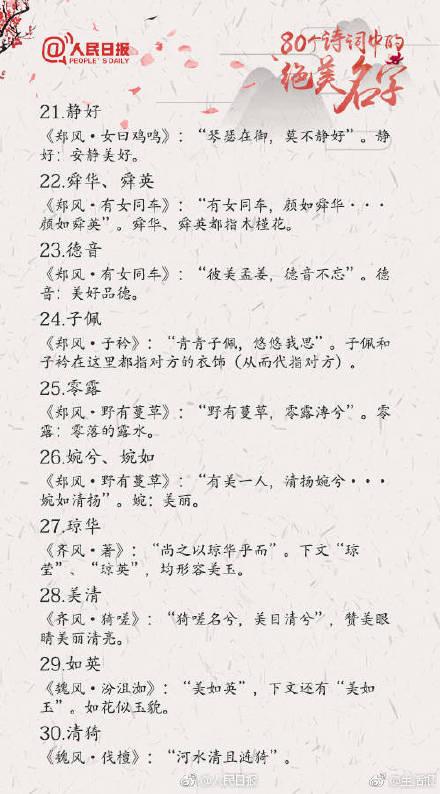 人民日报
PEOPLE'S DAILY
80个诗词中的
绝美名字
21.静好
《郑风·女曰鸡鸣》：“琴瑟在御，莫不静好”。静
好：安静美好。
22.舜华、舜英
《郑风·有女同车》：“有女同车，颜如舜华···
颜如舜英”。舜华、舜英都指木槿花。
23.德音
《郑风·有女同车》：“彼美孟姜，德音不忘”。德
音：美好品德。
24.子佩
《郑风·子衿》：“青青子佩，悠悠我思”。子佩和
子衿在这里都指对方的衣饰（从而代指对方）。
25.零露
《郑风·野有蔓草》：“野有蔓草，零露漙兮”。零
露：零落的露水。
26.婉兮、婉如
《郑风·野有蔓草》：“有美一人，清扬婉兮···
婉如清扬”。婉：美丽。
27.琼华
《齐风·著》：“尚之以琼华乎而”。下文“琼
莹”、“琼英”，均形容美玉。
28.美清
《齐风·猗嗟》：“猗嗟名兮，美目清兮”，赞美眼
睛美丽清亮。
29.如英
《魏风·汾沮洳》：“美如英”，下文还有“美如
玉”。如花似玉貌。
30.清猗
《魏风·伐檀》：“河水清且涟猗”。
@人民日报